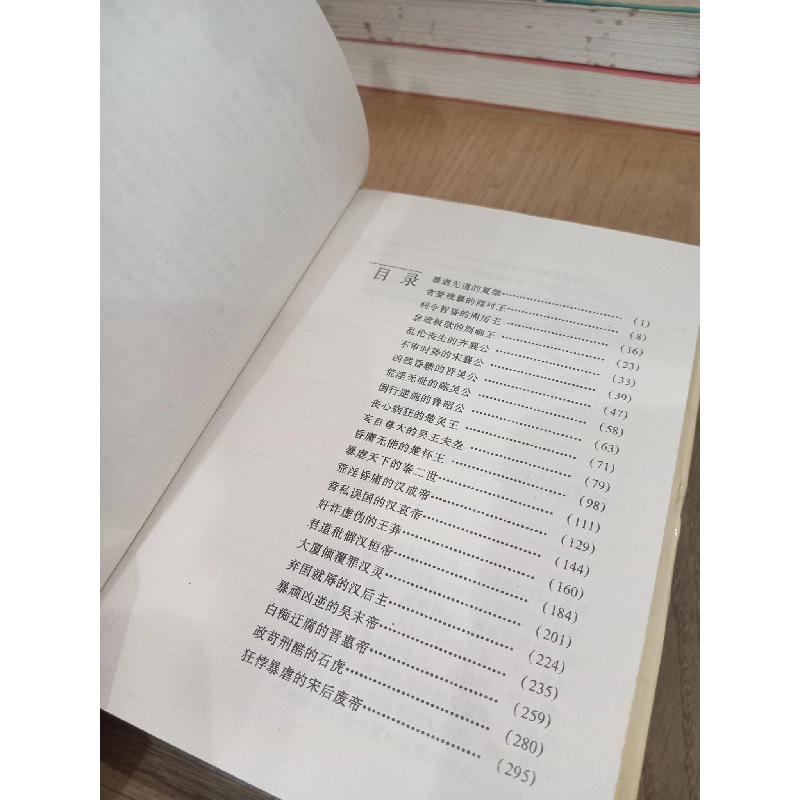 目录
暴虐无道的夏桀……(1)
贪婪残暴的商纣王……(8)
利令智昏的周厉王……(16)
怠政极欲的周幽王……(23)
乱伦丧生的齐襄公……(33)
不审时势的宋襄公……(39)
凶残昏聩的晋灵公……(47)
荒淫无耻的陈灵公……(58)
倒行逆施的鲁昭公……(63)
丧心病狂的楚灵王……(71)
妄自尊大的吴王夫差……(79)
昏庸无能的楚怀王……(98)
暴虐天下的秦二世……(111)
荒淫昏庸的汉成帝……(129)
营私误国的汉哀帝……(144)
奸诈虚伪的王莽……(160)
君道秕僻汉桓帝……(184)
大厦倾覆罪汉灵……(201)
弃国就辱的汉后主……(224)
暴顽凶逆的吴末帝……(235)
白痴迂腐的晋惠帝……(259)
政苛刑酷的石虎……(280)
狂悖暴虐的宋后废帝……(295)